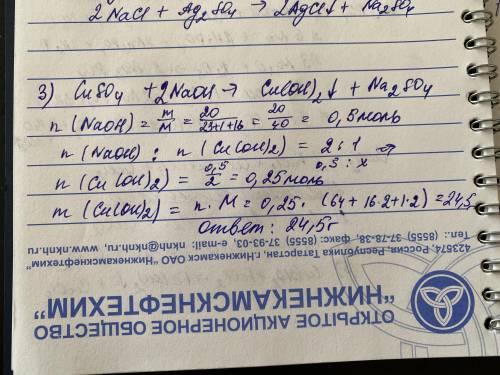 2 NaCl + Ag2SO4 → 2AgCl↓ + Na2SO4
3) CuSO4 + 2NaOH → Cu(OH)2↓ + Na2SO4
n (NaOH) = m/M = 20/23+1+16 = 20/40 = 0,5 моль
n (NaOH) : n (Cu(OH)2) = 2:1 ⇒
0,5 : x
n (Cu(OH)2) = 0,5/2 = 0,25 моль
m (Cu(OH)2) = n · M = 0,25 · (64 + 16·2+1·2) = 24,5
ответ: 24,5г
423574, Россия, Республика Татарстан, г.Нижнекамск ОАО "Нижнекамскнефтехим"
Тел.: (8555) 37-78-38, факс: (8555) 37-93-03, e-mail: nknh@nknh.ru, www.nknh.ru
ОТКРЫТОЕ АКЦИОНЕРНОЕ ОБЩЕСТВО
"НИЖНЕКАМСКНЕФТЕХИМ"